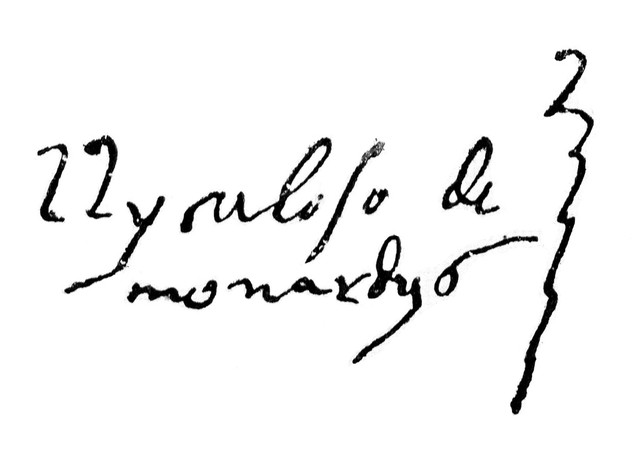 Nyculoso de
monardys